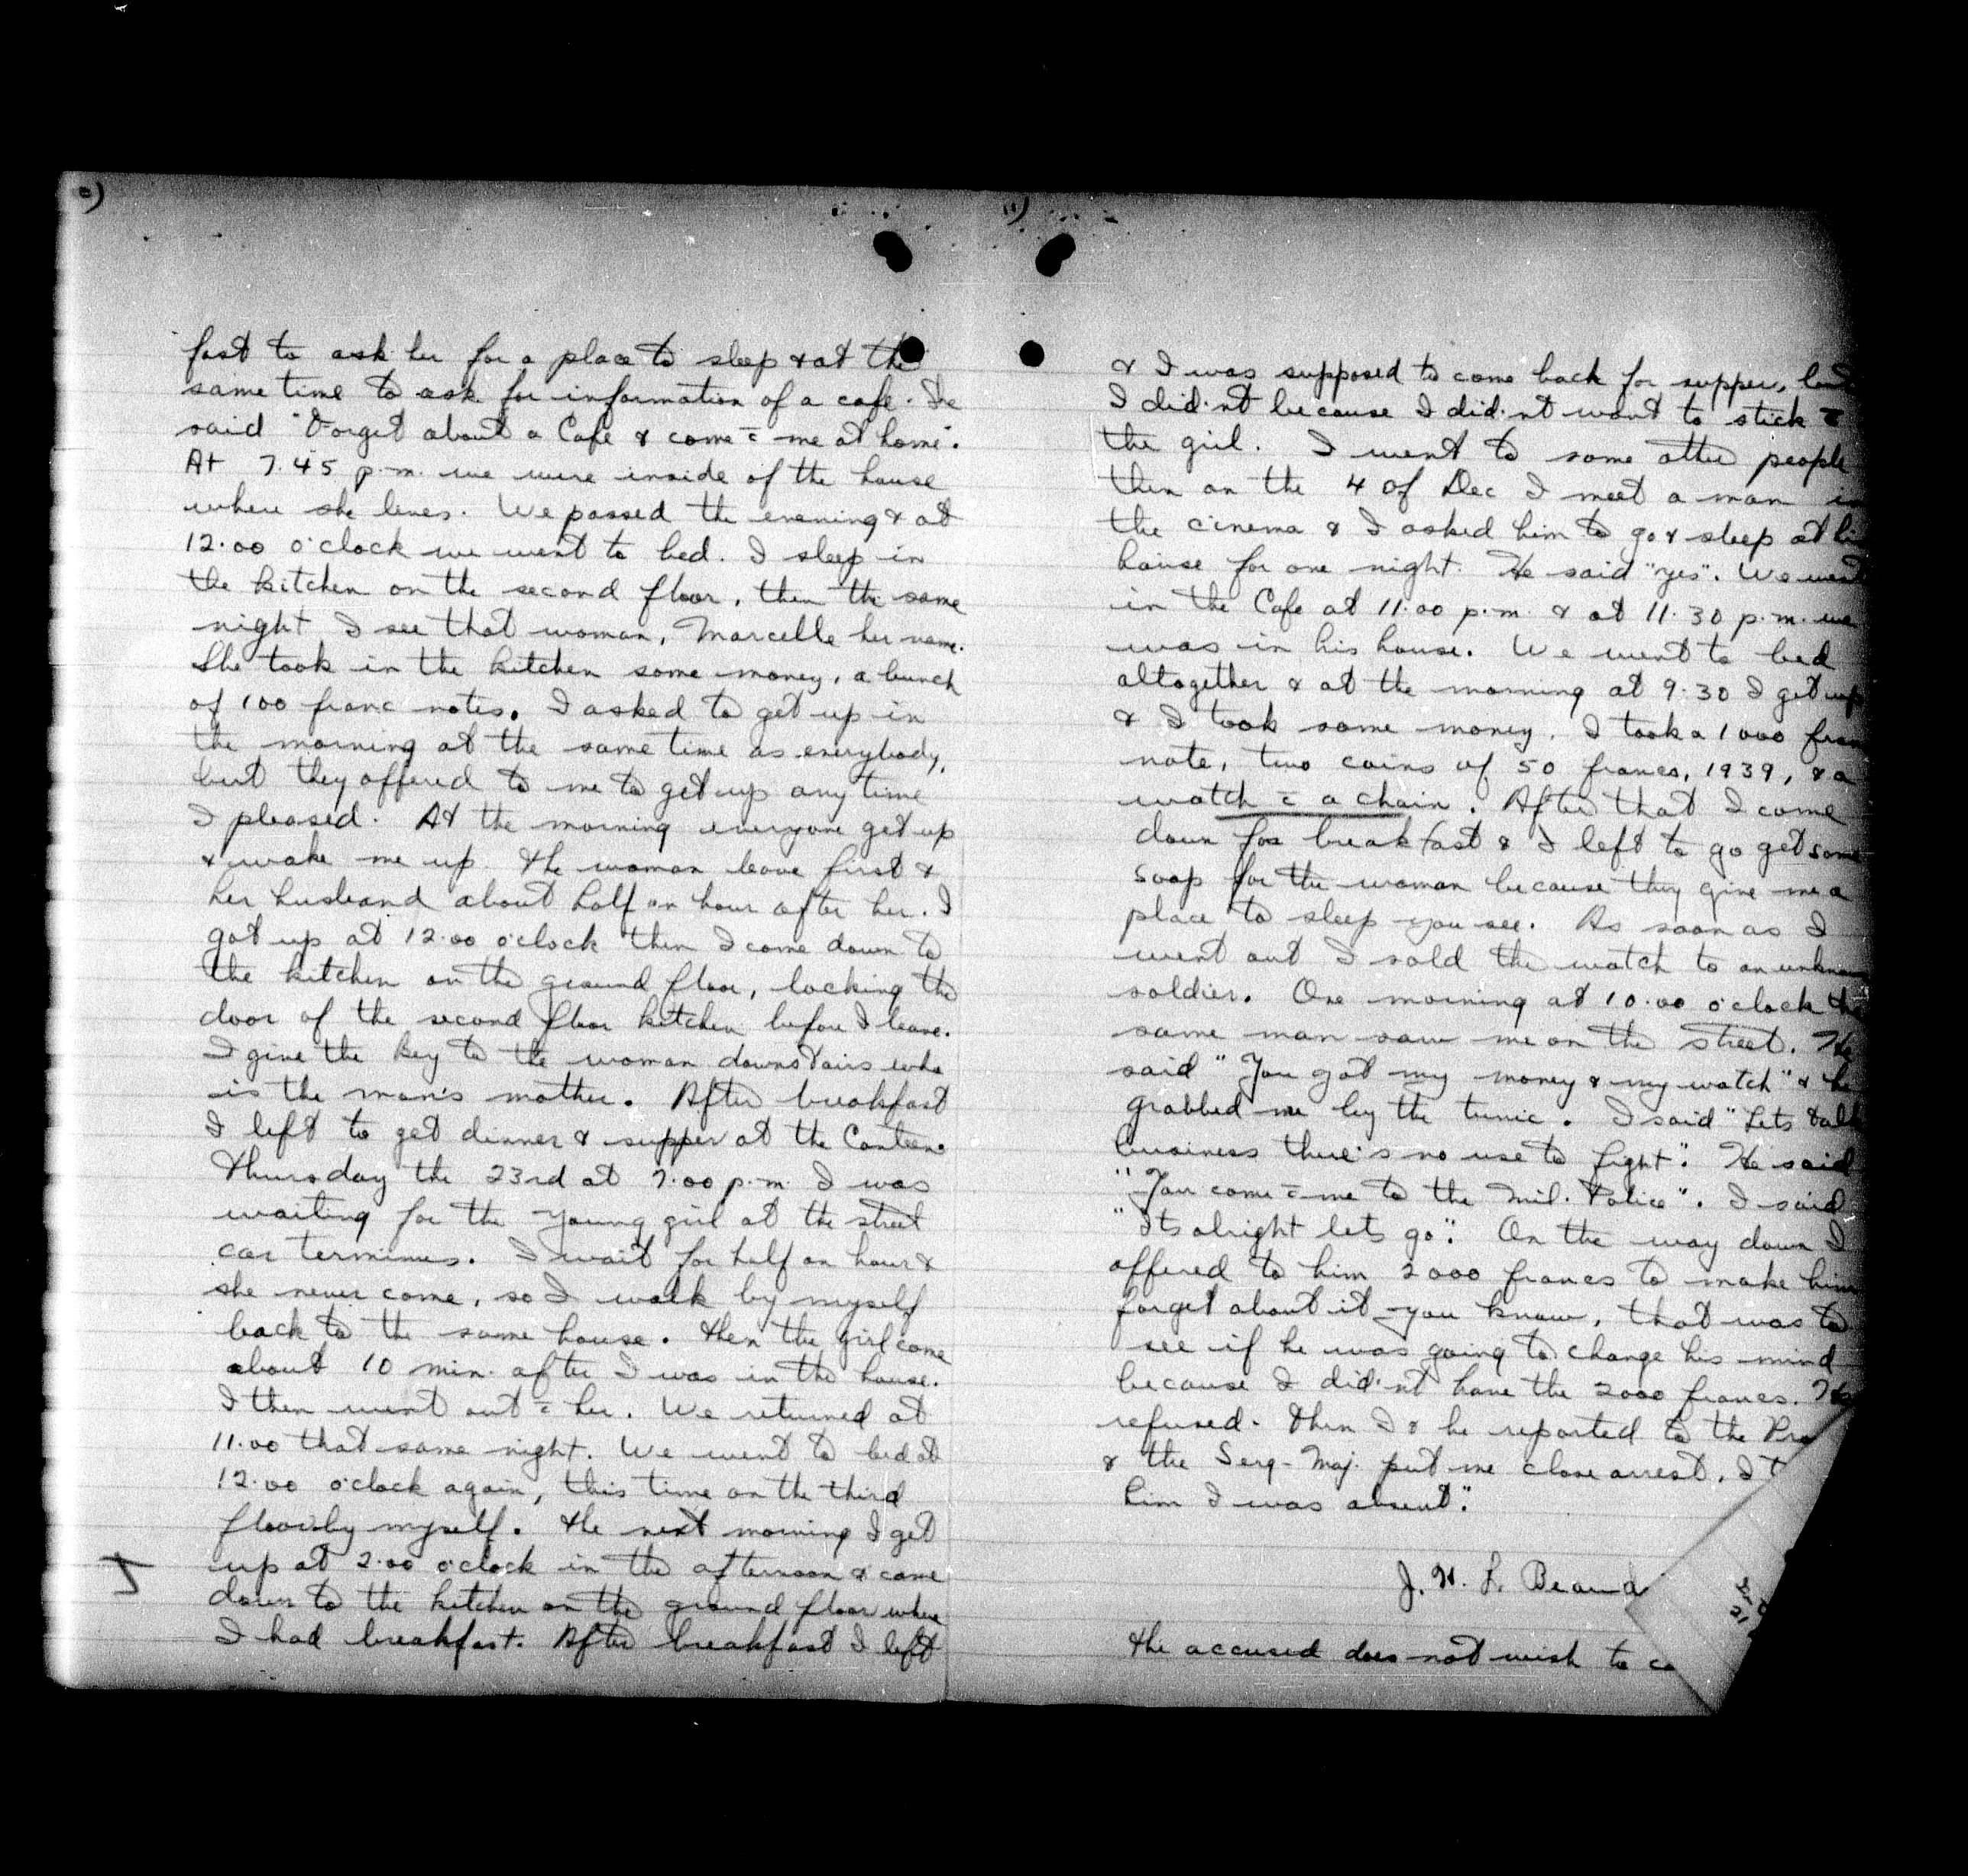 fast to ask her for a place to sleep & at the
same time to ask for information of a cafe. He
said "Forget about a Cafe & come c̄ me at home".
At 7.45 p.m. we were inside of the house
where she lives. We passed the evening & at
12.00 o'clock we went to bed. I sleep in
the kitchen on the second floor, then the same
night I see that woman, Marcelle her name.
She took in the kitchen some money, a bunch
of 100 franc notes. I asked to get up in
the morning at the same time as everybody,
but they offered to me to get up any time
I pleased. At the morning everyone get up
& wake me up. The woman leave first &
her husband about half an hour after her. I
got up at 12.00 o'clock then I come down to
the kitchen on the ground floor, locking the
door of the second floor kitchen before I leave.
I give the key to the woman downstairs who
is the man's mother. After breakfast
I left to get dinner & supper at the Canteen.
Thursday the 23rd at 7.00 p.m. I was
waiting for the young girl at the street
car terminus. I wait for half an hour &
she never come, so I walk by myself
back to the same house. Then the girl come
about 10 min. after I was in the house.
I then went out c̄ her. We returned at
11.00 that same night. We went to bed at
12.00 o'clock again, this time on the third
floor by myself. The next morning I get
up at 2.00 o'clock in the afternoon & came
down to the kitchen on the ground floor where
I had breakfast. After breakfast I left
11)
& I was supposed to come back for supper, but
I did'nt because I did'nt want to stick c̄
the girl. I went to some other people
then on the 4 of Dec I meet a man in
the cinema & I asked him to go & sleep at his
house for one night. He said "yes". We went
in the Cafe at 11.00 p.m. & at 11.30 p.m. we
was in his house. We went to bed
altogether & at the morning at 9.30 I get up
& I took some money. I took a 1000 fran
note, two coins of 50 francs, 1939, & a
watch c̄ a chain. After that I come
down for breakfast & I left to go get some
soap for the woman because they give me a
place to sleep you see. As soon as I
went out I sold the watch to an unknown
soldier. One morning at 10.00 o'clock the
same man saw me on the street. He
said "You got my money & my watch" & he
grabbed me by the tunic. I said "Lets talk
business there's no use to fight". He said
"You come c̄ me to the Mil. Police". I said
"Its alright lets go". On the way down I
offered to him 2000 francs to make him
forget about it you know, that was to
see if he was going to change his mind
because I did'nt have the 2000 francs. He
refused. Then I & he reported to the Pro
& the Serg-Maj. put me close arrest. I t
him I was absent."
J. H. L. Beaud
The accused does not wish to